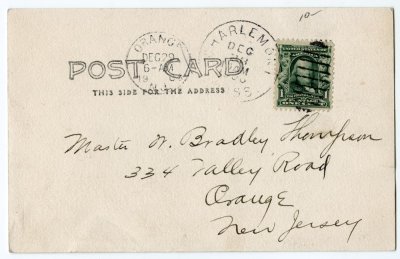 10-
ORANGE
DEC 29
6-AM
CHARLEMONT
DEC
POST CARD
THIS SIDE FOR THE ADDRESS
Master W. Bradley Thompson
334 Valley Road
Orange
New Jersey